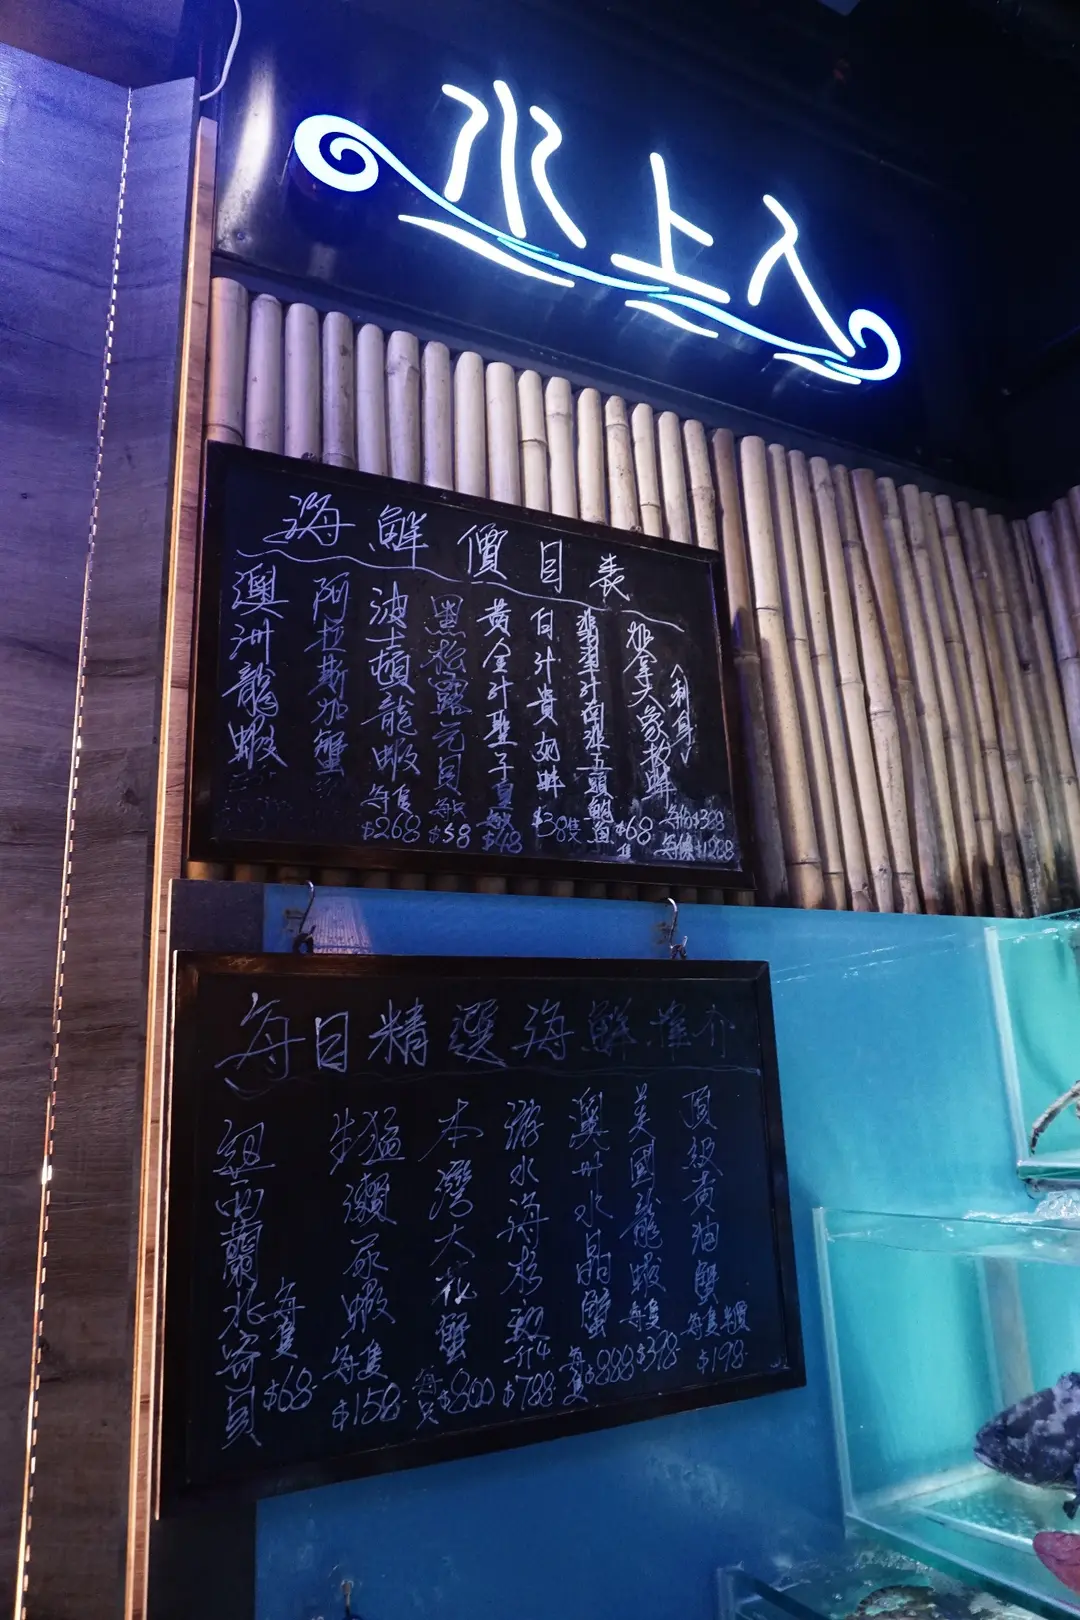 水上人
海鮮價目表
澳洲龍蝦
阿拉斯加蟹
波士頓龍蝦 每隻 $268
黑松露元貝 每只 $58
黃金汁聖子皇 $48
白汁貴妃蚌 $38隻
翡翠汁南非五頭鮑魚 $68
加拿大象拔蚌 (刺身) 每份$388 每條$1288
每日精選海鮮推介
紐西蘭北寄貝 每隻 $68
生猛瀨尿蝦 每隻 $158
本灣大花蟹 每只 $800
游水海杉斑 一斤 $788
澳洲水晶蟹 每隻 $888
美國龍蝦 每隻 $318
頂級黃油蟹 每隻半價 $198